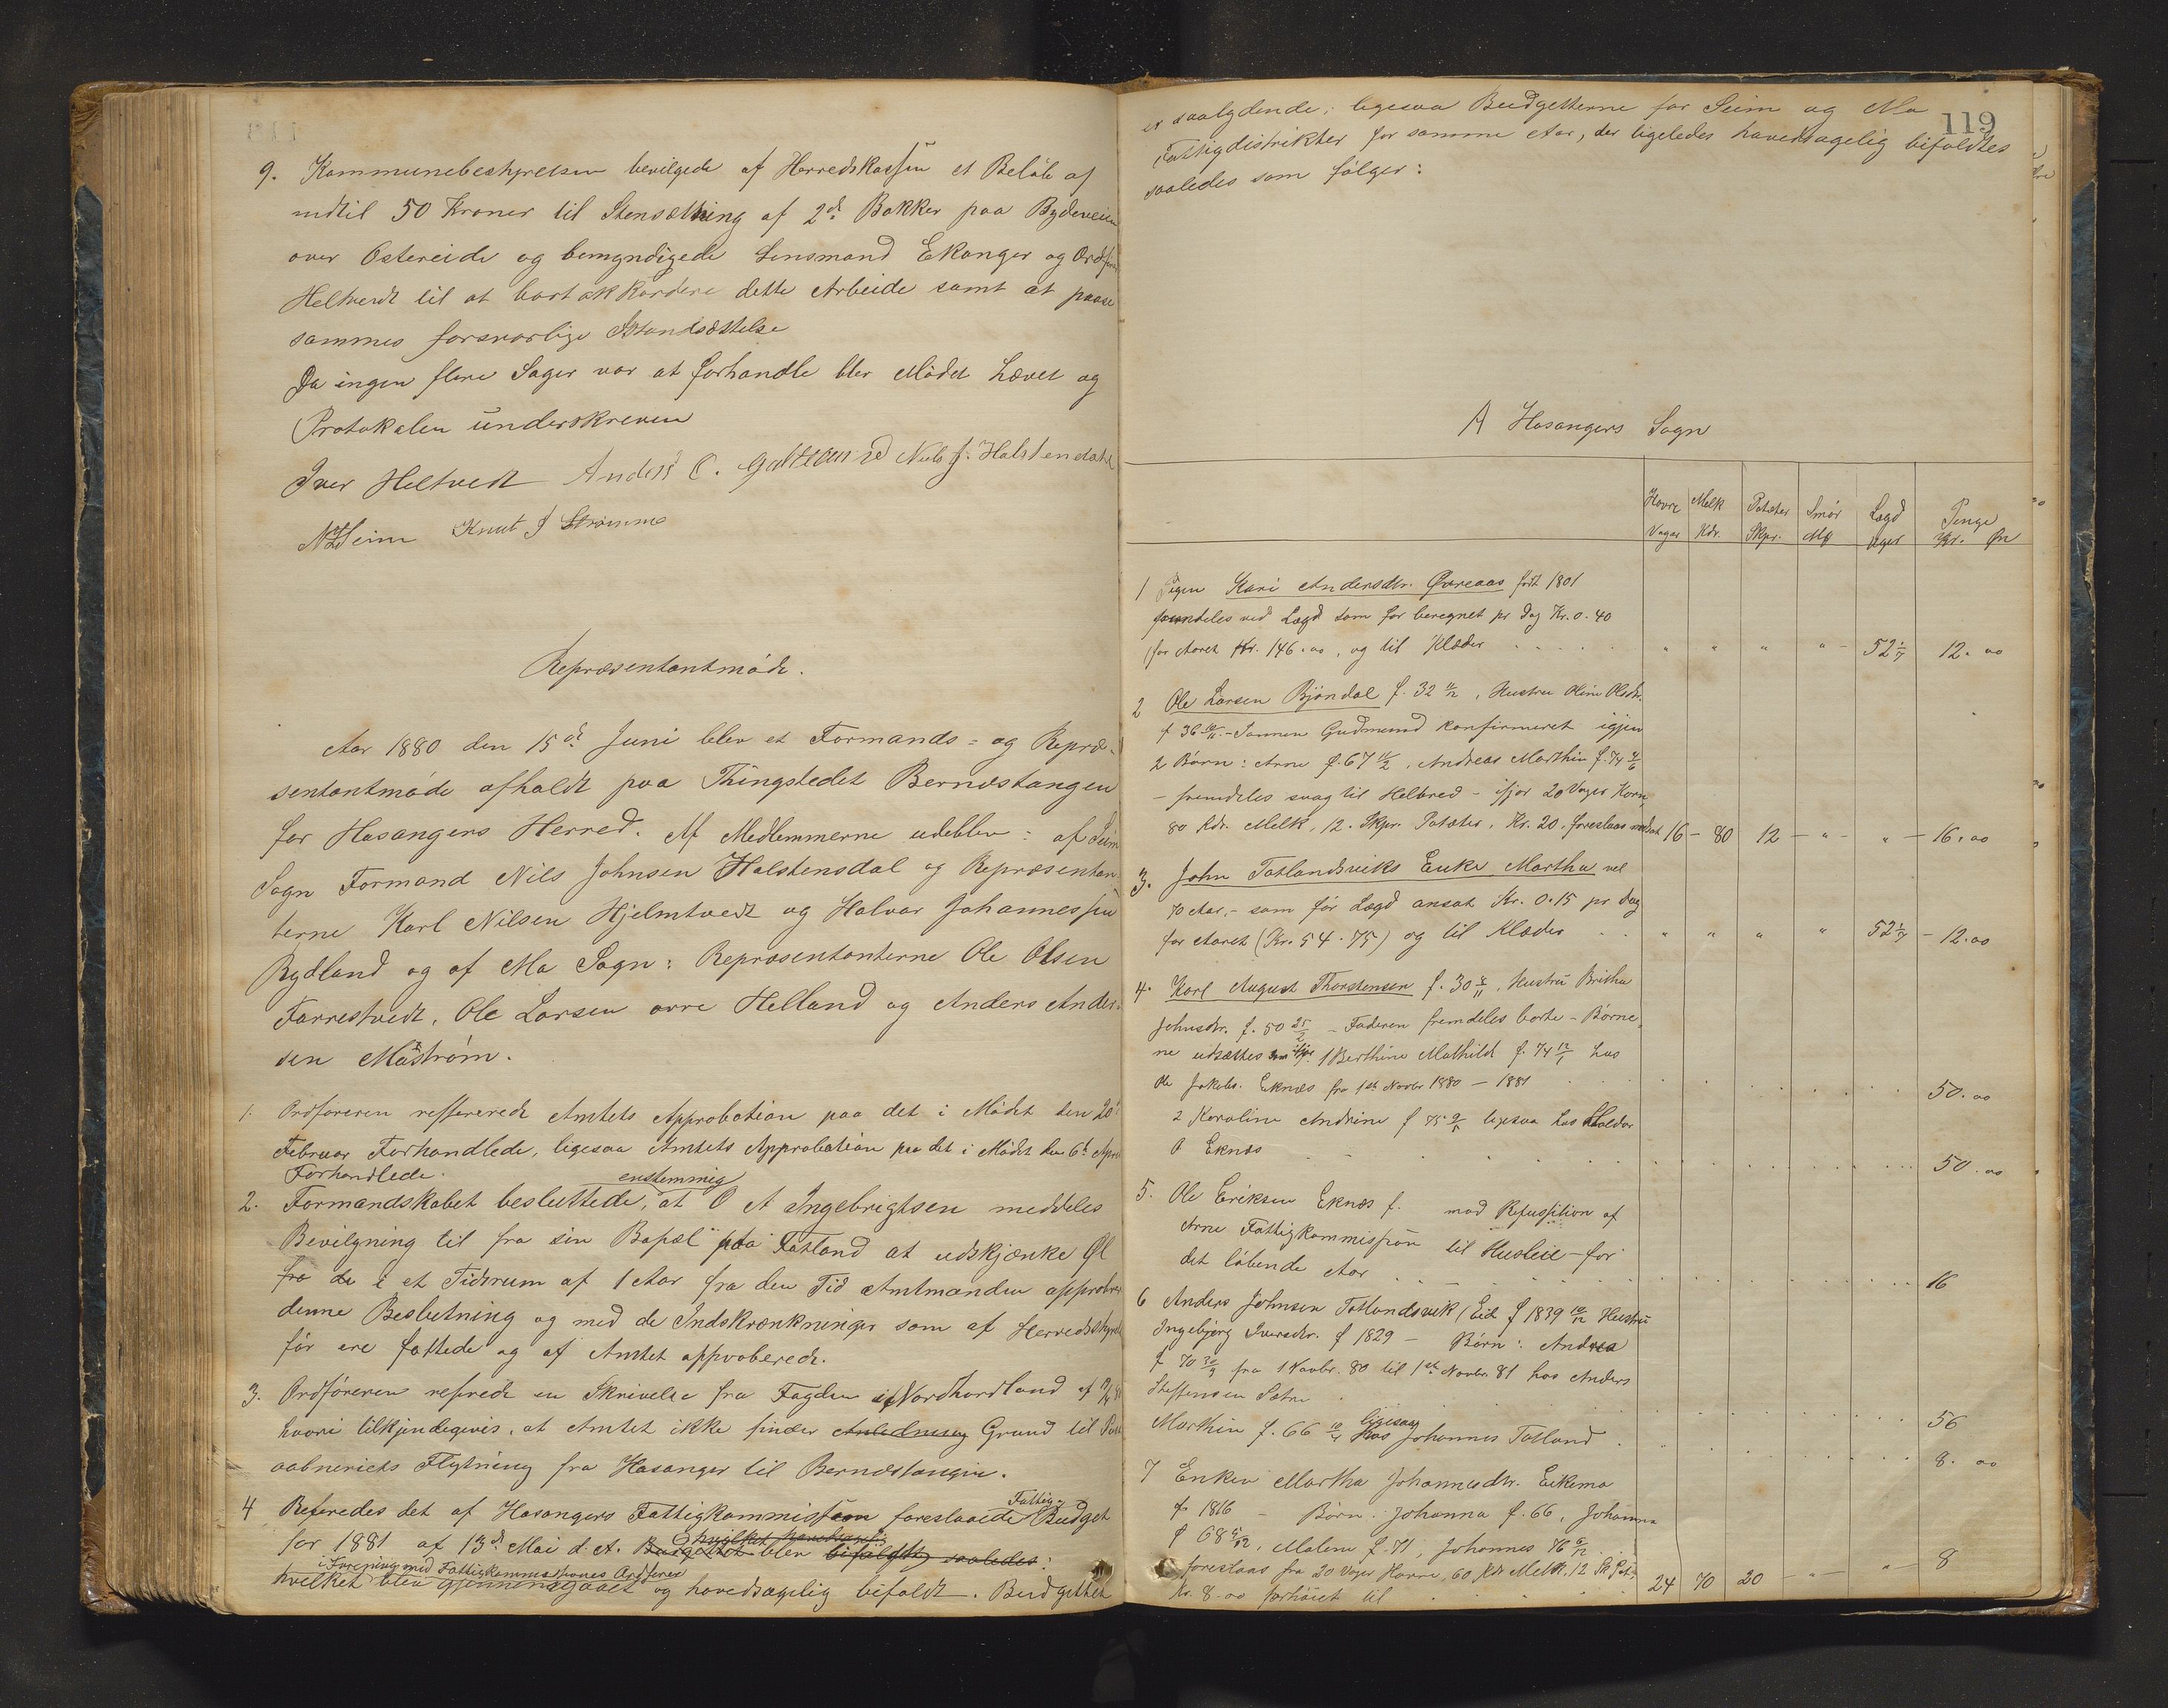 9. Kommunebestyrelsen bevilgede af Herredskassen et Beløb af
indtil 50 Kroner til Stensætning af 2de Bakker paa Bydeveien
over Ostereide og bemyndigede Lensmand Ekanger og Ordfører
Heltvedt til at bortakkordere dette Arbeide samt at paase
sammes forsvarlige Istandsættelse
Da ingen flere Sager var at forhandle blev Mødet hævet og
Protokolen underskreven
Iver Heltvedt Anders O. Gulteland Nils J. Halstendahl
N Seim Knut J Strømme
Repræsentantmøde.
Aar 1880 den 15de Juni blev et Formands- og Repræ-
sentantmøde afholdt paa Thingstedet Bernæstangen
for Hosangers Herred. Af Medlemmerne udeblev: af Seim
Sogn Formand Nils Johnsen Halstensdal og Repræsentan-
terne Karl Nilsen Hjelmtvedt og Halvor Johannessen
Rydland og af Mo Sogn: Repræsentanterne Ole Olsen
Farrestvedt, Ole Larsen øvre Helland og Anders Ander-
sen Måstrøm.
1. Ordføreren reffererede Amtets Approbation paa det i Mødet den 20de
Februar Forhandlede, ligesaa Amtets Approbation paa det i Mødet den 6te April
Forhandlede.
2. Formandskabet besluttede, enstemmig at O A Ingebrigtsen meddeles
Bevilgning til fra sin Bopæl paa Fatland at udskjænke Øl
fra de i et Tidsrum af 1 Aar fra den Tid Amtmanden approberer
denne Beslutning og med de Indskrænkninger som af Herredsstyret
før ere fattede og af Amtet approberede.
3. Ordføreren refererede en Skrivelse fra Fogden i Nordhordland af
hvori tilkjendegives, at Amtet ikke finder Anledning Grund til Post
aabneriets Flytning fra Hosanger til Bernæstangen.
4 Refereredes det af Hosangers Fattigkommission foreslaaede Fattig-Budget
for 1881 af 13de Mai d. A. Budgettet blev hvilket hovedsagelig bifaldt saaledes:
i Forening med Fattigkommissionens Ordfører
hvilket blev gjennemgaaet og hovedsagelig bifaldt. Budgettet
119
er saalydende; ligesaa Budgetterne for Seim og Mo
Fattigdistrikter for samme Aar, der ligeledes hovedsagelig bifaldtes
saaledes som følger:
A Hosangers Sogn
Havre Vager Melk Kdr. Potæter Skpr. Smør M Lægd uger Penge Kr. Ør
1 Pigen Kari Andersdtr. Øvreaas født 1801
fremdeles ved Lægd som før beregnet pr Dag Kr. 0.40
for Aaret Kr. 146.00, og til Klæder " " " " 52 1/7 12.00
2 Ole Larsen Bjøndal f. 32 11/12, Hustru Oline Olsdtr.
f 36 10/11 - Sønnen Gudmund konfirmeret igjen
2 Børn: Arne f. 67 11/2, Andreas Marthin f. 74 4/6
- fremdeles svag til Helbred - ifjor 20 Vager Korn
80 Kdr. Melk, 12 Skpr. Potæter, Kr. 20, foreslaaes nedsat 16 - 80 12 - " - " - 16.00
3. John Totlandsviks Enke Martha vel
70 Aar, - som før Lægd ansat Kr. 0.15 pr Dag
for Aaret (Kr. 54.75) og til Klæder " " " " 52 1/7 - 12.00
4. Karl August Thorstensen f. 30 8/11, Hustru Britha
Johnsdtr. f. 50 25/2 - Faderen fremdeles borte - Børne-
ne udsættes som ifjor 1 Berthine Mathild f. 74 12/1 hos
Ole Jakobs. Eknæs fra 1ste Novbr 1880 - 1881 50.00
2 Karoline Andrine f 75 9/5 ligesaa hos Haldor
O Eknæs 50.00
5. Ole Eriksen Eknæs f. mod Refussition af
Arne Fattigkommission til Husleie - for
det løbende Aar 16
6 Anders Johnsen Totlandsvik / Eid f 1839 10/12 Hustru
Ingebjørg Iversdtr. f 1829 - Børn: Andrea
f 70 30/3 fra 1 Novbr. 80 til 1ste Novbr. 81 hos Anders
Steffensen Sætre 56
Marthin f. 66 10/4 ligesaa hos Johannes Totland 8.00
7 Enken Martha Johannesdtr. Eikemo
f. 1816 - Børn: Johanna f. 66, Johanna
f 68, Malene f. 71, Johannes 76
foreslaas fra 20 Vager Havre, 60 Kdr Melk, 12 Sk Pot.
Kr. 8.00 forhøiet til 24 70 20 - " - " - 8